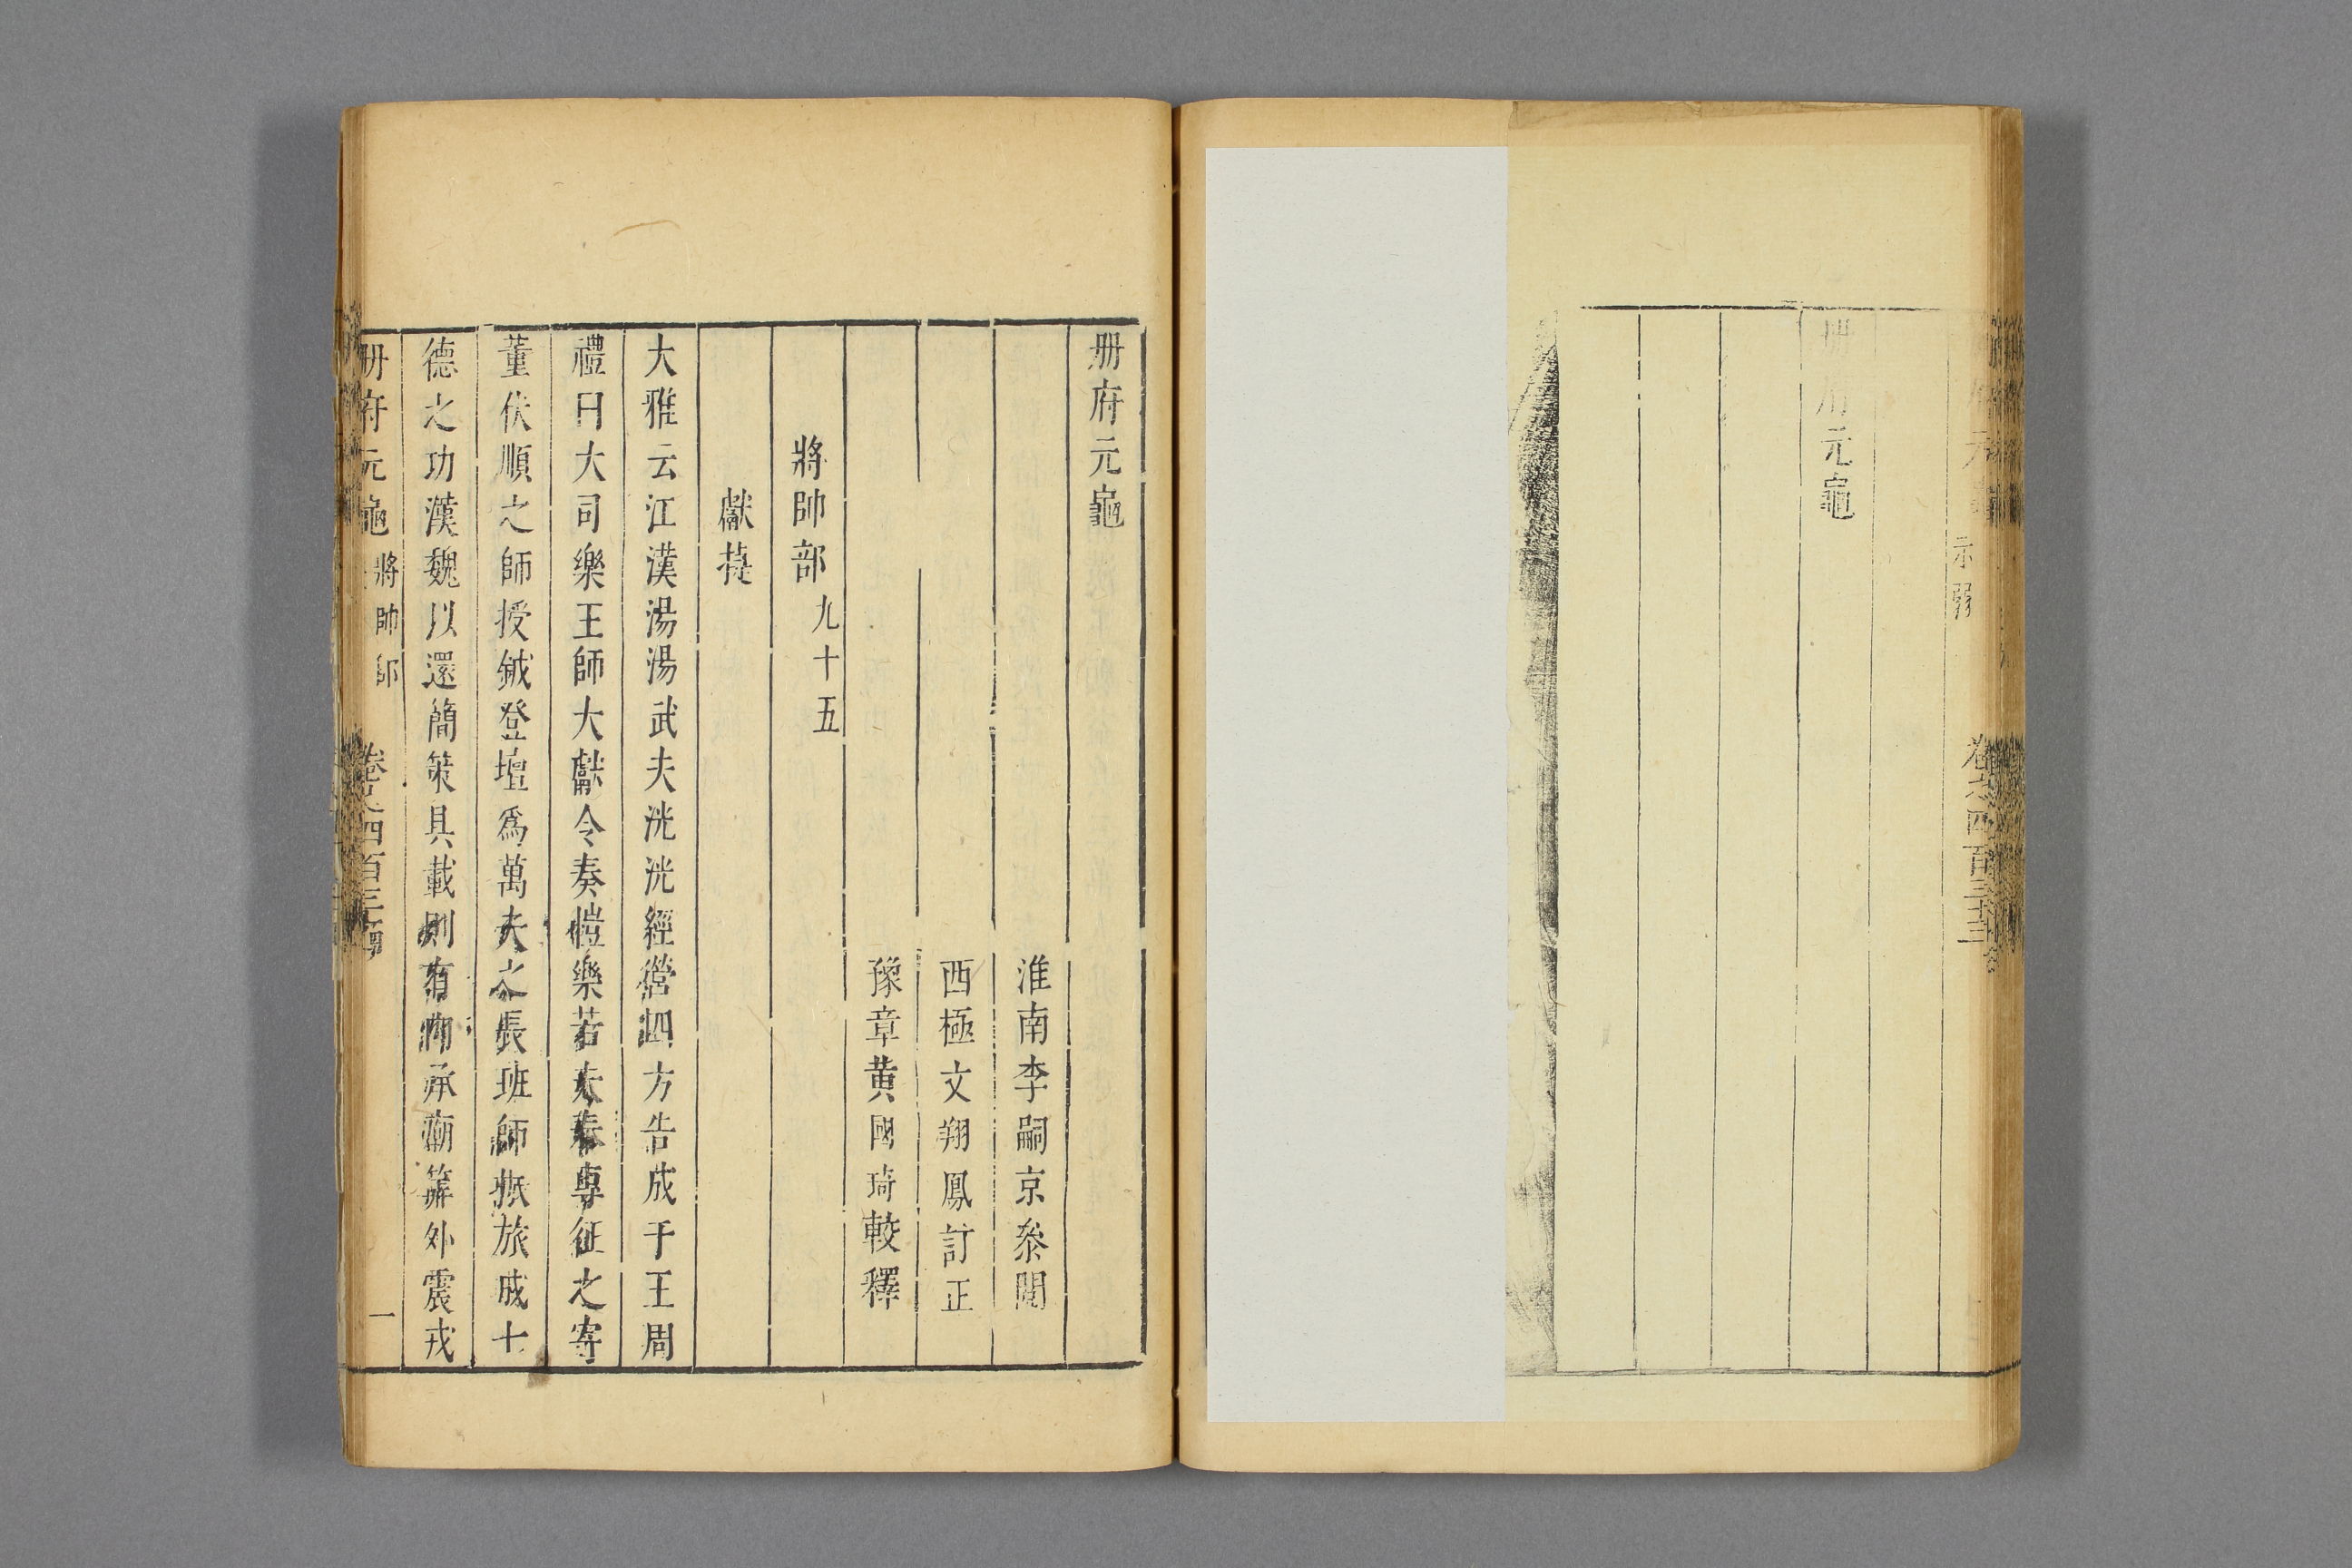 元龜
示弱
册府元龜
淮南李嗣京叅閱
西極文翔鳳訂正
豫章黄國琦較釋
將帥部九十五
獻捷
大雅云江漢湯湯武夫洸洸經營四方告成于王周
禮曰大司樂王師大獻令奏愷樂若夫奉專征之寄
董伏順之師授鉞登壇爲萬夫之長班師振旅成七
德之功漢魏以還簡策具載則有内承廟筭外震戎
册府元龜 將帥部
一